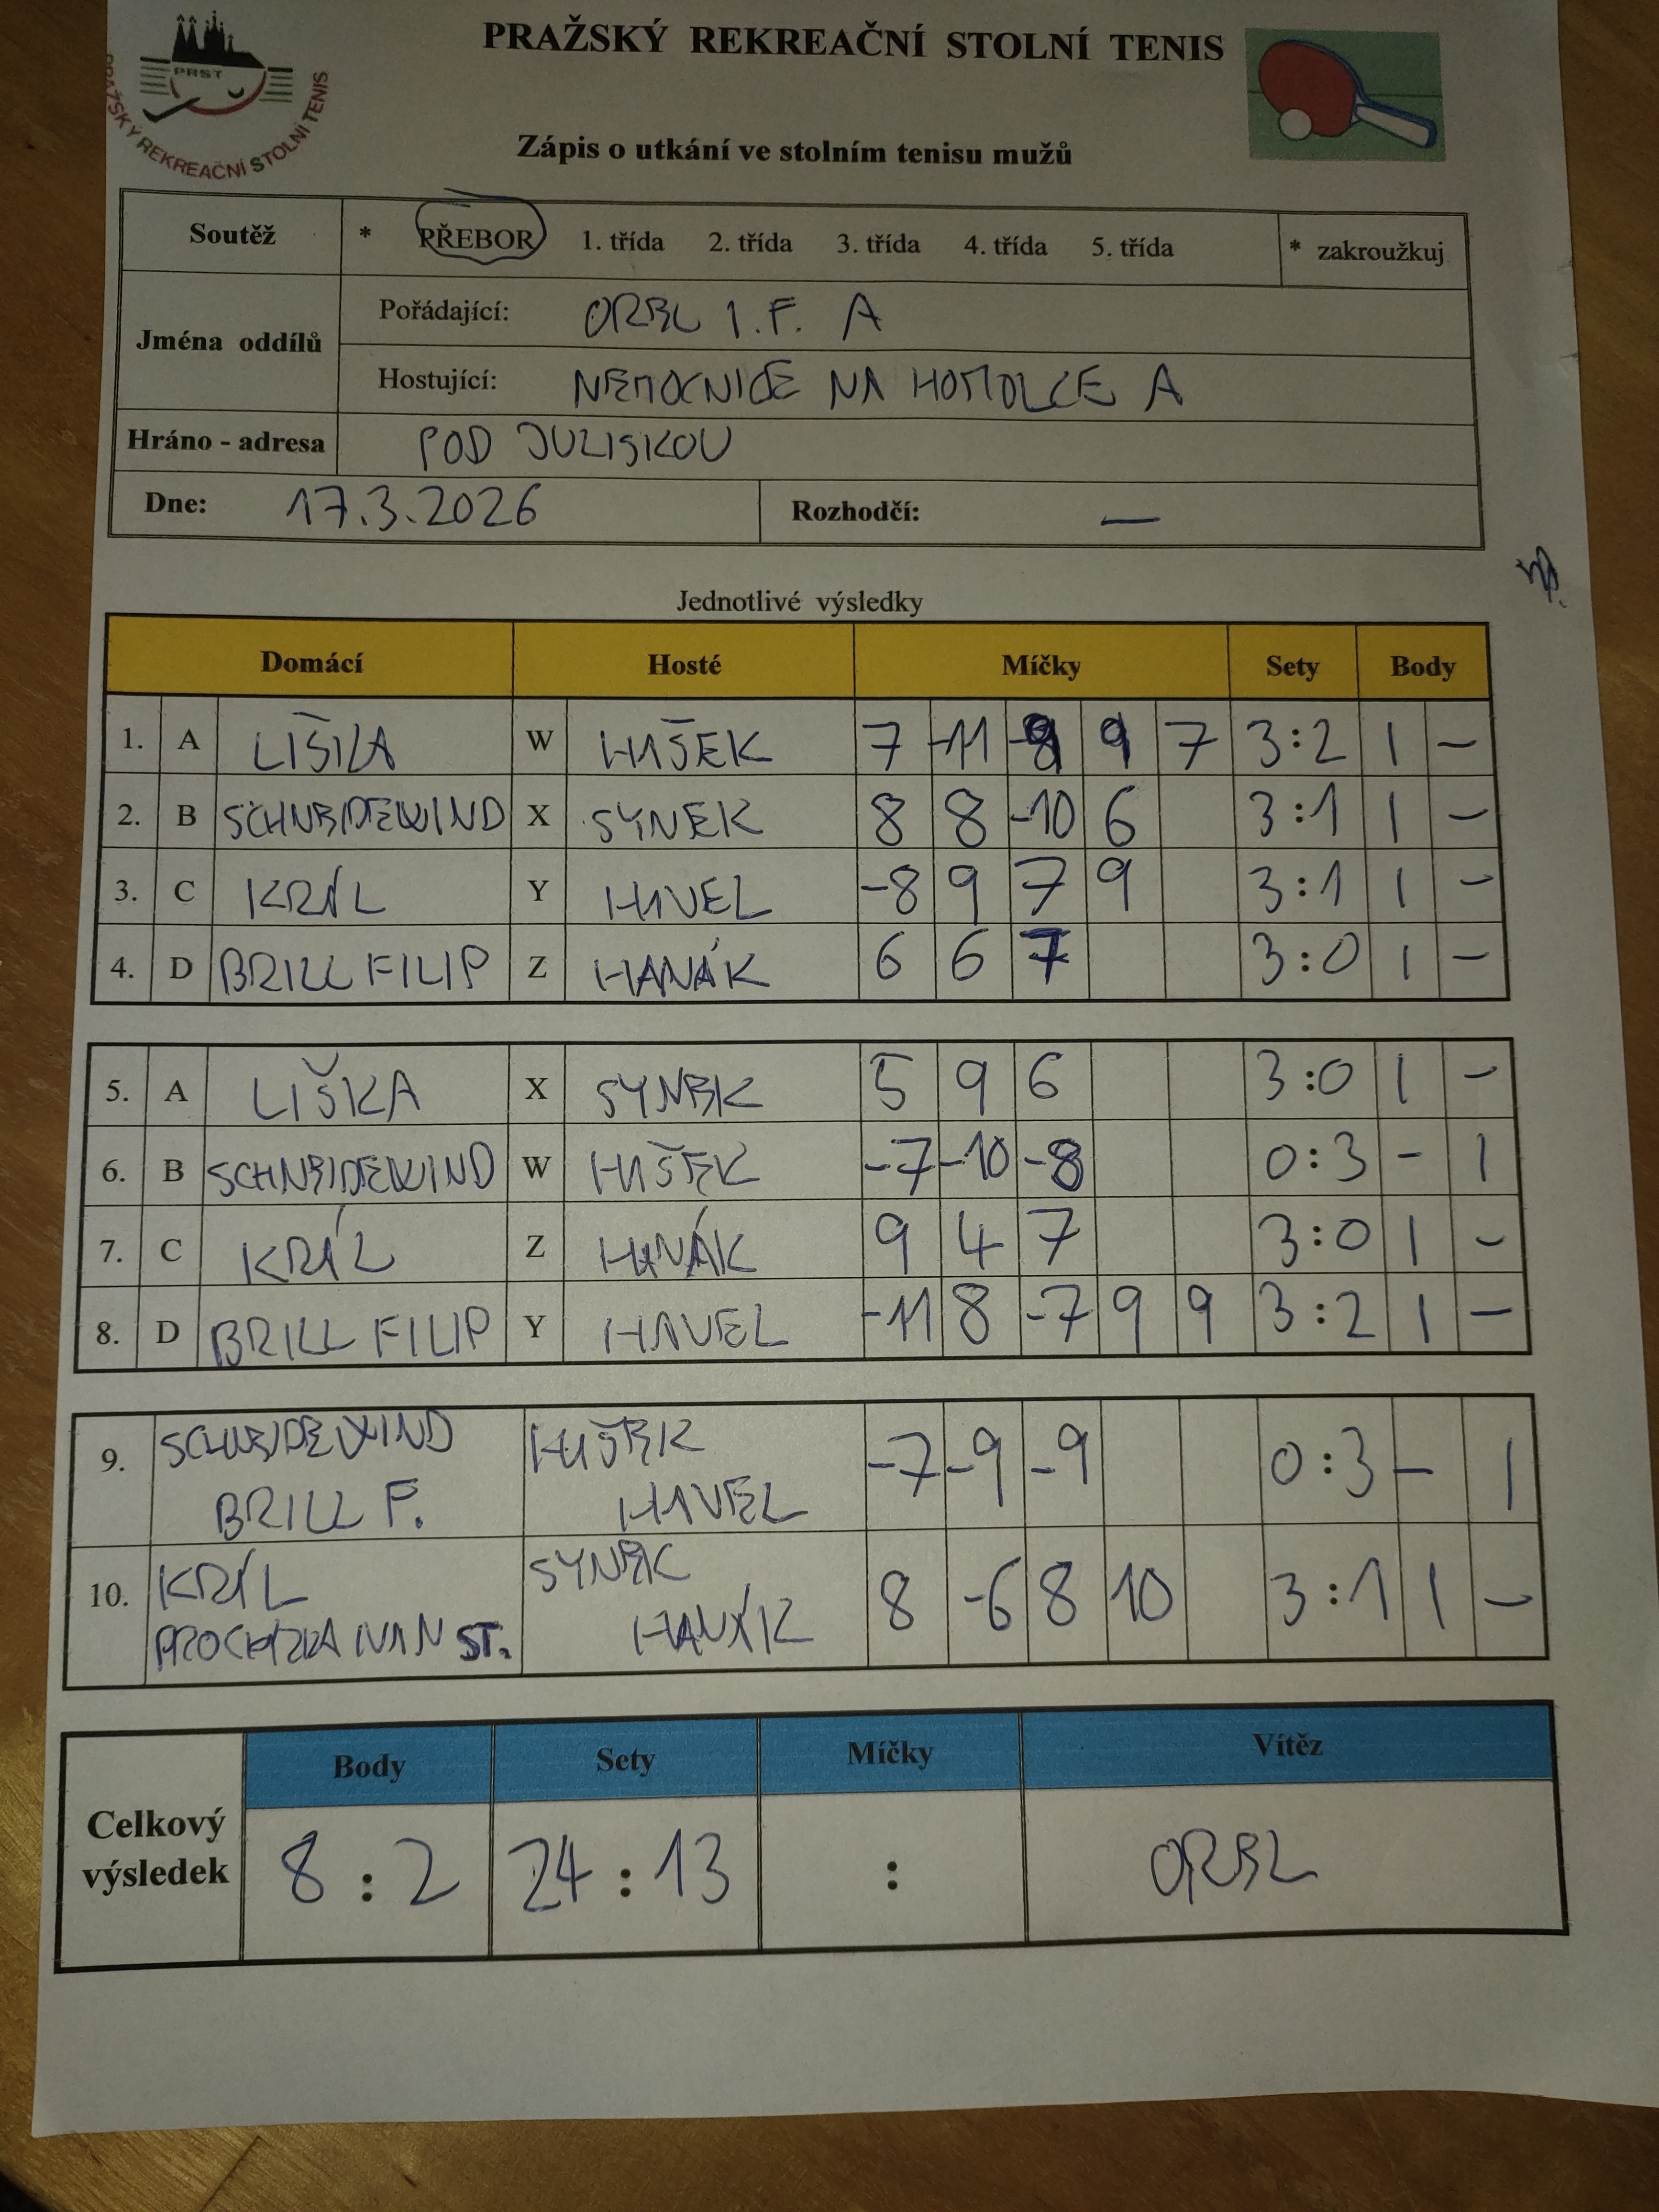 PRAŽSKÝ REKREAČNÍ STOLNÍ TENIS
PRST
PRAŽSKÝ REKREAČNÍ STOLNÍ TENIS
Zápis o utkání ve stolním tenisu mužů
Soutěž * PŘEBOR 1. třída 2. třída 3. třída 4. třída 5. třída * zakroužkuj
Jména oddílů
Pořádající: OREL 1.F. A
Hostující: NEMOCNICE NA HOMOLCE A
Hráno - adresa POD JULISKOU
Dne: 17.3.2026 Rozhodčí: —
Jednotlivé výsledky
Domácí Hosté Míčky Sety Body
1. A LIŠKA W HAŠEK 7 -11 -9 9 7 3:2 1 -
2. B SCHNEIDEWIND X SYNEK 8 8 -10 6 3:1 1 -
3. C KRÁL Y HAVEL -8 9 7 9 3:1 1 -
4. D BRILL FILIP Z HANÁK 6 6 7 3:0 1 -
5. A LIŠKA X SYNEK 5 9 6 3:0 1 -
6. B SCHNEIDEWIND W HAŠEK -7 -10 -8 0:3 - 1
7. C KRÁL Z HANÁK 9 4 7 3:0 1 -
8. D BRILL FILIP Y HAVEL -11 8 -7 9 9 3:2 1 -
9. SCHNEIDEWIND HAŠEK -7 -9 -9 0:3 - 1
BRILL F. HAVEL
10. KRÁL SYNEK 8 -6 8 10 3:1 1 -
PROCHÁZKA IVAN ST. HANÁK
Celkový výsledek
Body Sety Míčky Vítěz
8 : 2 24 : 13 : OREL